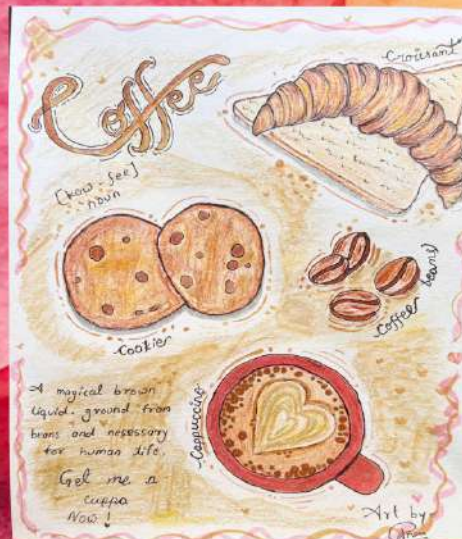 Coffee
Croissant
[kaw-fee]
noun
Cookies
Coffee beans
Cappuccino
A magical brown
liquid. ground from
beans and nessesary
for human life.
Get me a
cuppa
Now!
Art by